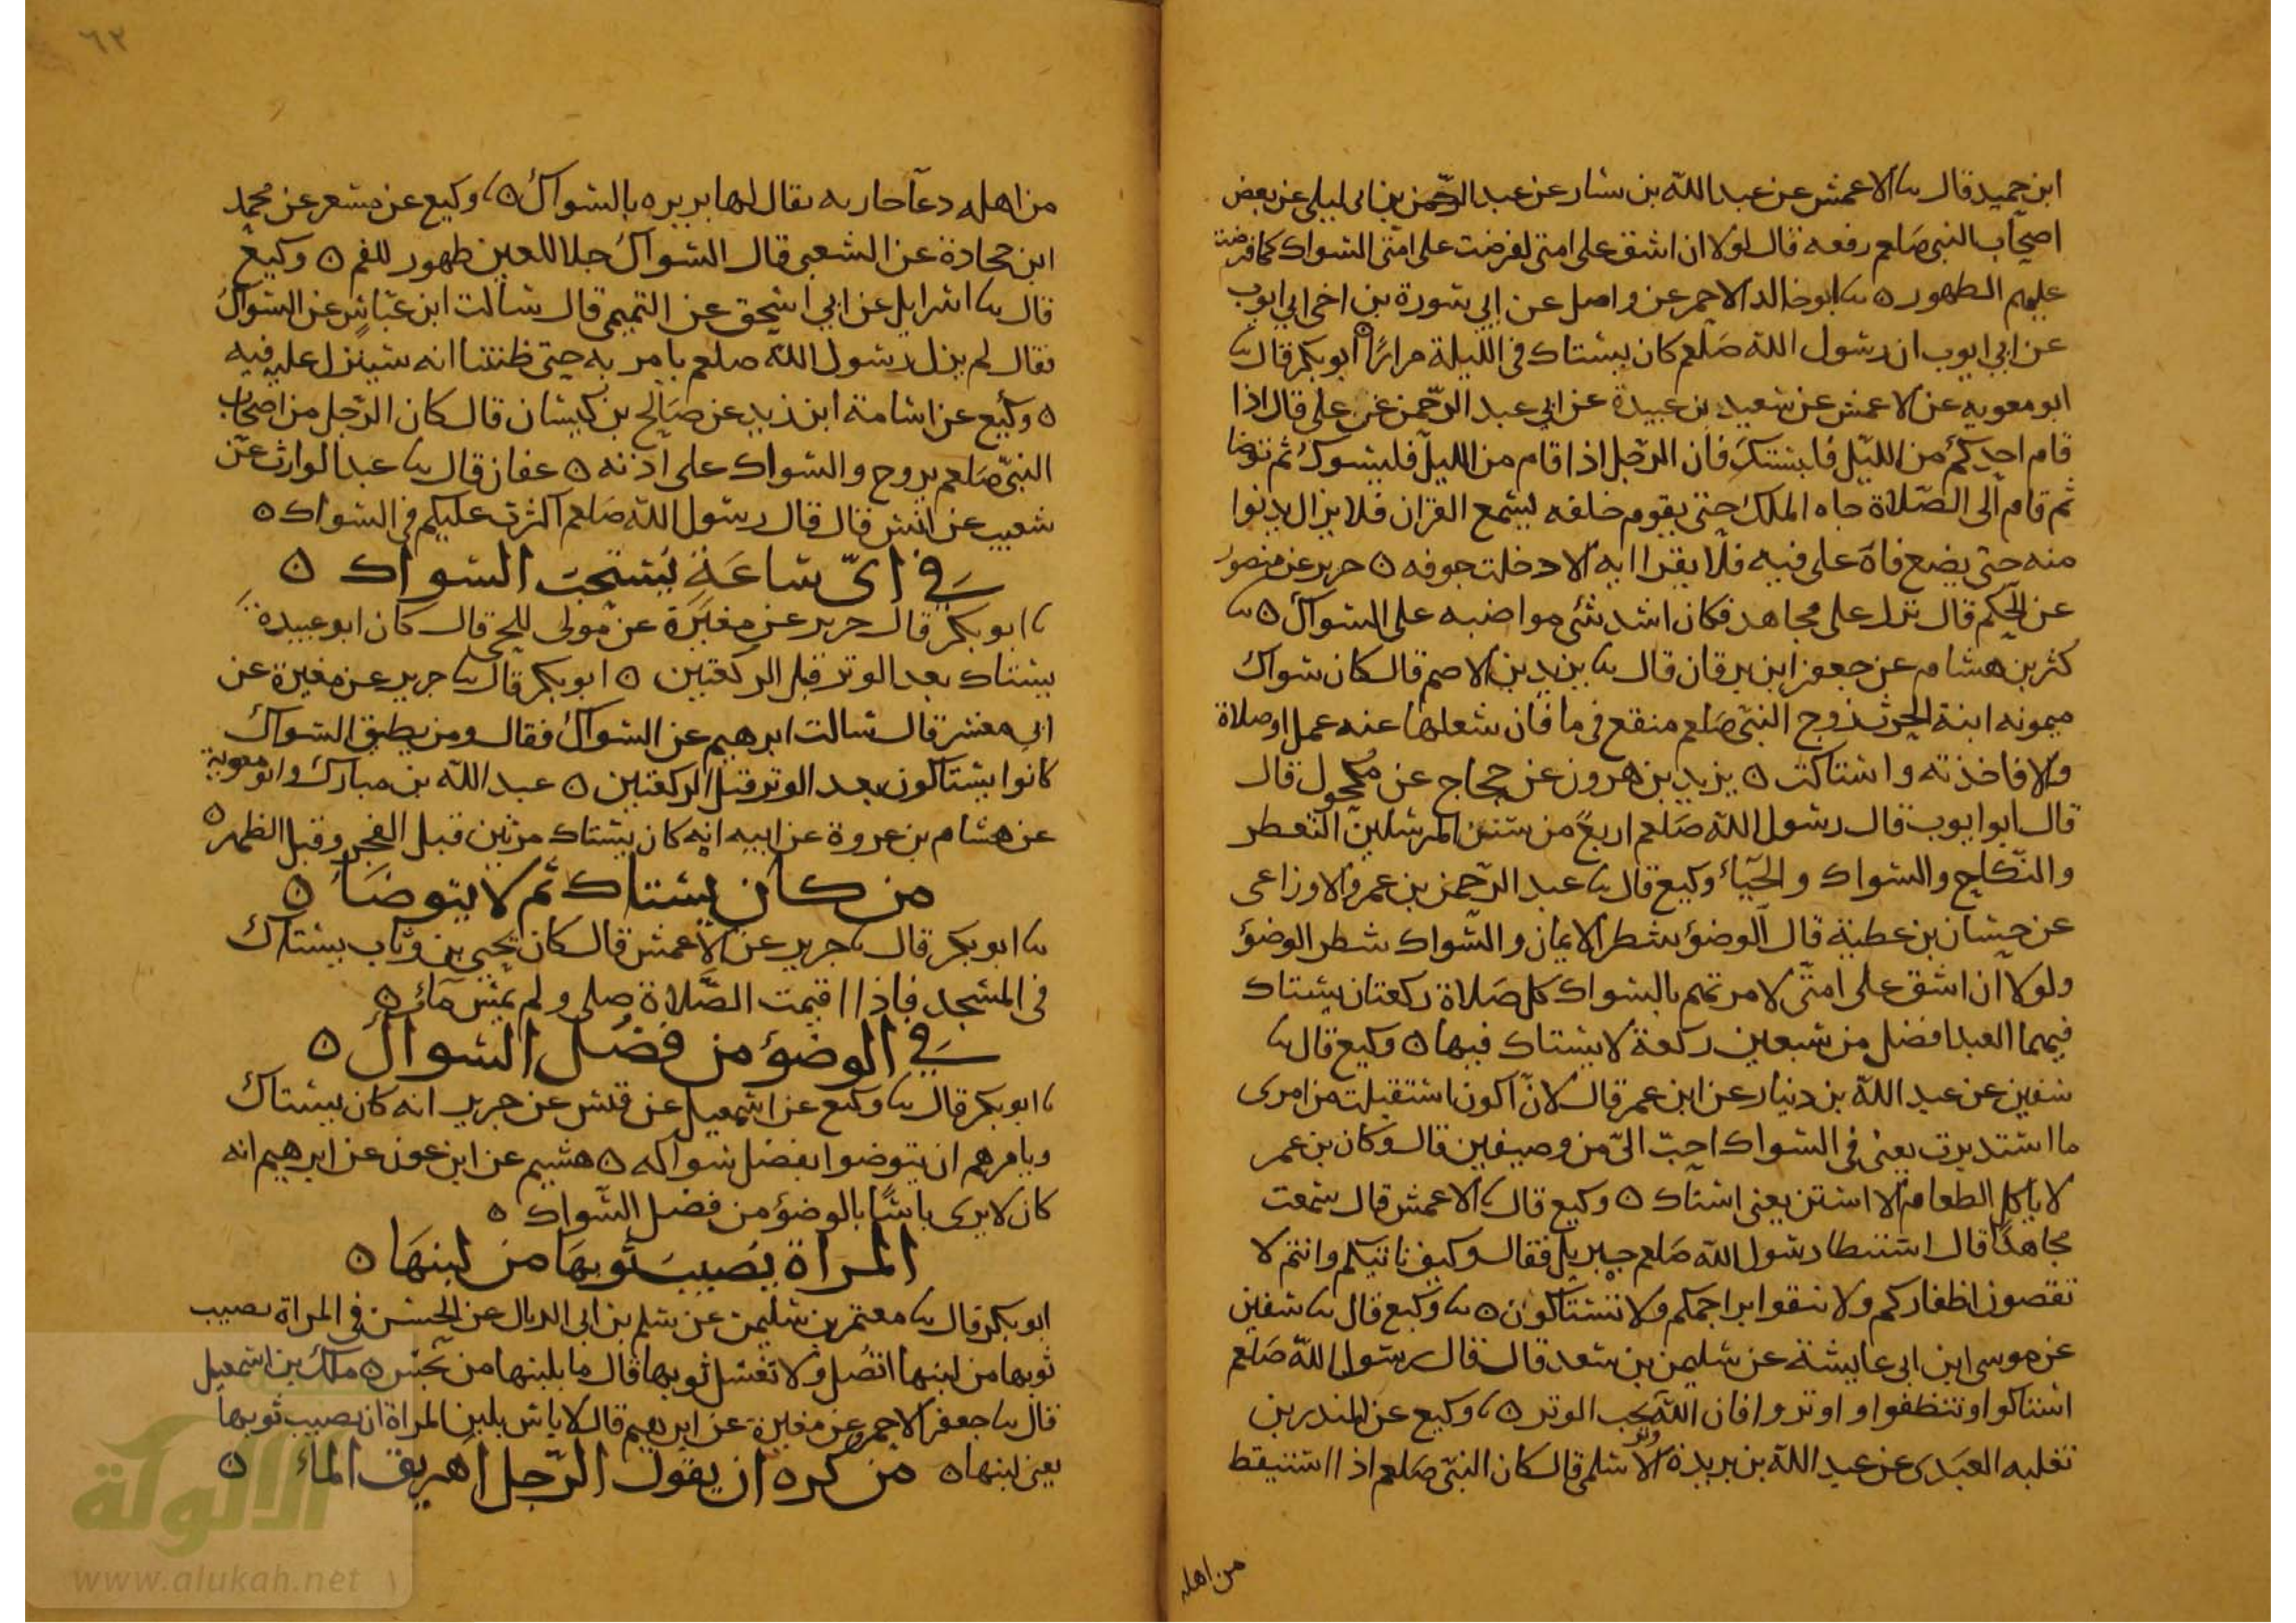 ابن حميد قال ثنا الاعمش عن عبد الله بن يسار عن عبد الرحمن بن ابى ليلى عن بعض
اصحاب النبى صلعم رفعه قال لولا ان اشق على امتى لفرضت على امتى السواك كما فرضت
عليهم الطهور ه ثنا ابو خالد الاحمر عن واصل عن ابي سورة بن اخى ابي ايوب
عن ابي ايوب ان رسول الله صلعم كان يستاك فى الليلة مرارًا ه ابو بكر قال ثنا
ابو معويه عن الاعمش عن سعيد بن عبيدة عن ابي عبد الرحمن عن على قال اذا
قام احدكم من الليل فليستك فان الرجل اذا قام من الليل فليسوك ثم توضا
ثم قام الى الصلاة جاه الملك حتى يقوم خلفه ليسمع القران فلا يزال يدنوا
منه حتى يضع فاه على فيه فلا يقرا ايه الا دخلت جوفه ه جرير عن منصور
عن الحكم قال نزل على مجاهد فكان اشد شئ مواضبه على السواك ه ثنا
كثر بن هشام عن جعفر ابن برقان قال ثنا يزيد بن الاصم قال كان سواك
ميمونه ابنة الحرث زوج النبى صلعم منقع فى ما فان شغلها عنه عمل او صلاة
والا فاخذته واستاكت ه يزيد بن هرون عن حجاج عن مكحول قال
قال ابو ايوب قال رسول الله صلعم اربع من سنن المرسلين التعطر
والنكاح والسواك والحياء وكيع قال ثنا عبد الرحمن بن عمر والاوزاعى
عن حسان بن عطية قال الوضؤ شطر الايمان والسواك شطر الوضؤ
ولولا ان اشق على امتى لامرتهم بالسواك كل صلاة ركعتان يستاك
فيهما العبد افضل من سبعين ركعة لا يستاك فيها ه وكيع قال ثنا
سفين عن عبد الله بن دنيار عن ابن عمر قال لان اكون استقبلت من امرى
ما استدبرت يعنى فى السواك احب الىّ من وصيفين قال وكان بن عمر
لا ياكل الطعام الا استن يعنى استاك ه وكيع قال ثنا الاعمش قال سمعت
مجاهدًا قال استبطا رسول الله صلعم جبريل فقال وكيف ناتيكم وانتم لا
تقصون اظفاركم ولا تنقوا براجمكم ولا تستاكون ه ثنا وكيع قال ثنا سفين
عن موسى ابن ابى عايشة عن سليمن بن سعد قال قال رسول الله صلعم
استاكوا وتنظفوا واوتروا فان الله وتر يحب الوتر ه ثنا وكيع عن المندر بن
تعلبه العبدى عن عبد الله بن بريدة الاسلمى قال كان النبى صلعم اذا استيقظ
من اهله
٦٢
من اهله دعا جاريه يقال لها بريره بالسواك ه ثنا وكيع عن مسعر عن محمد
ابن جحادة عن الشعبى قال السواك جلا للعين طهور للفم ه وكيع
قال ثنا اسرايل عن ابي اسحق عن التميمى قال سالت ابن عباس عن السواك
فقال لم يزل رسول الله صلعم يامر به حتى ظننا انه سينزل عليه فيه
ه وكيع عن اسامة ابن زيد عن صالح بن كيسان قال كان الرجل من اصحاب
النبى صلعم يروح والسواك على اذنه ه عفان قال ثنا عبد الوارث عن
شعيب عن انس قال قال رسول الله صلعم اكثرت عليكم فى السواك ه
في اىّ ساعة يُستحب السواك ه
ثنا ابو بكر قال جرير عن مغيرة عن مولى للحى قال كان ابو عبيدة
يستاك بعد الوتر قبل الركعتين ه ابو بكر قال ثنا جرير عن مغيرة عن
ابي معشر قال سالت ابرهيم عن السواك فقال ومن يطيق السواك
كانوا يستاكون بعد الوتر قبل الركعتين ه عبد الله بن مبارك وابو معوية
عن هشام بن عروة عن ابيه انه كان يستاك مرتين قبل الفجر وقبل الظهر ه
من كان يستاك ثم لا يتوضا ه
ثنا ابو بكر قال ثنا جرير عن الاعمش قال كان يحيى بن وثاب يستاك
فى المسجد فاذا اقيمت الصلاة صلى ولم يمس ماء ه
في الوضؤ من فضل السواك ه
ثنا ابو بكر قال ثنا وكيع عن اسمعيل عن قيس عن جرير انه كان يستاك
ويامرهم ان يتوضوا بفضل سواكه ه هشيم عن ابن عون عن ابرهيم انه
كان لا يرى باسًا بالوضؤ من فضل السواك ه
المراة يصيب ثوبها من لبنها ه
ابو بكر قال ثنا معتمر بن سليمن عن سلم بن ابى الديال عن الحسن فى المراة يصيب
ثوبها من لبنها اتصل ولا تغسل ثوبها قال ما بلبنها من نجس ه ملك بن اسمعيل
قال ثنا جعفر الاحمر عن مغيرة عن ابرهيم قال لا باس بلبن المراة ان يصيب ثوبها
يعنى لبنها ه من كره ان يقول الرجل اهريق الماء ه
الألوكة
www.alukah.net